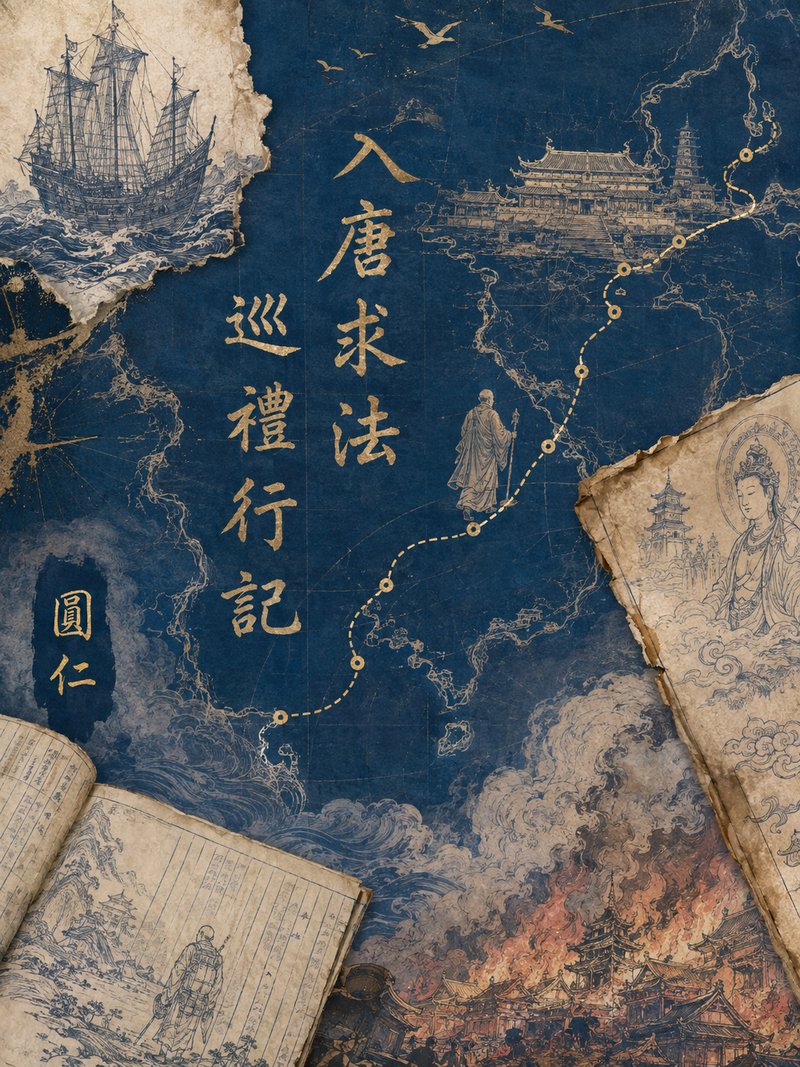 入唐求法
巡禮行記
圓仁